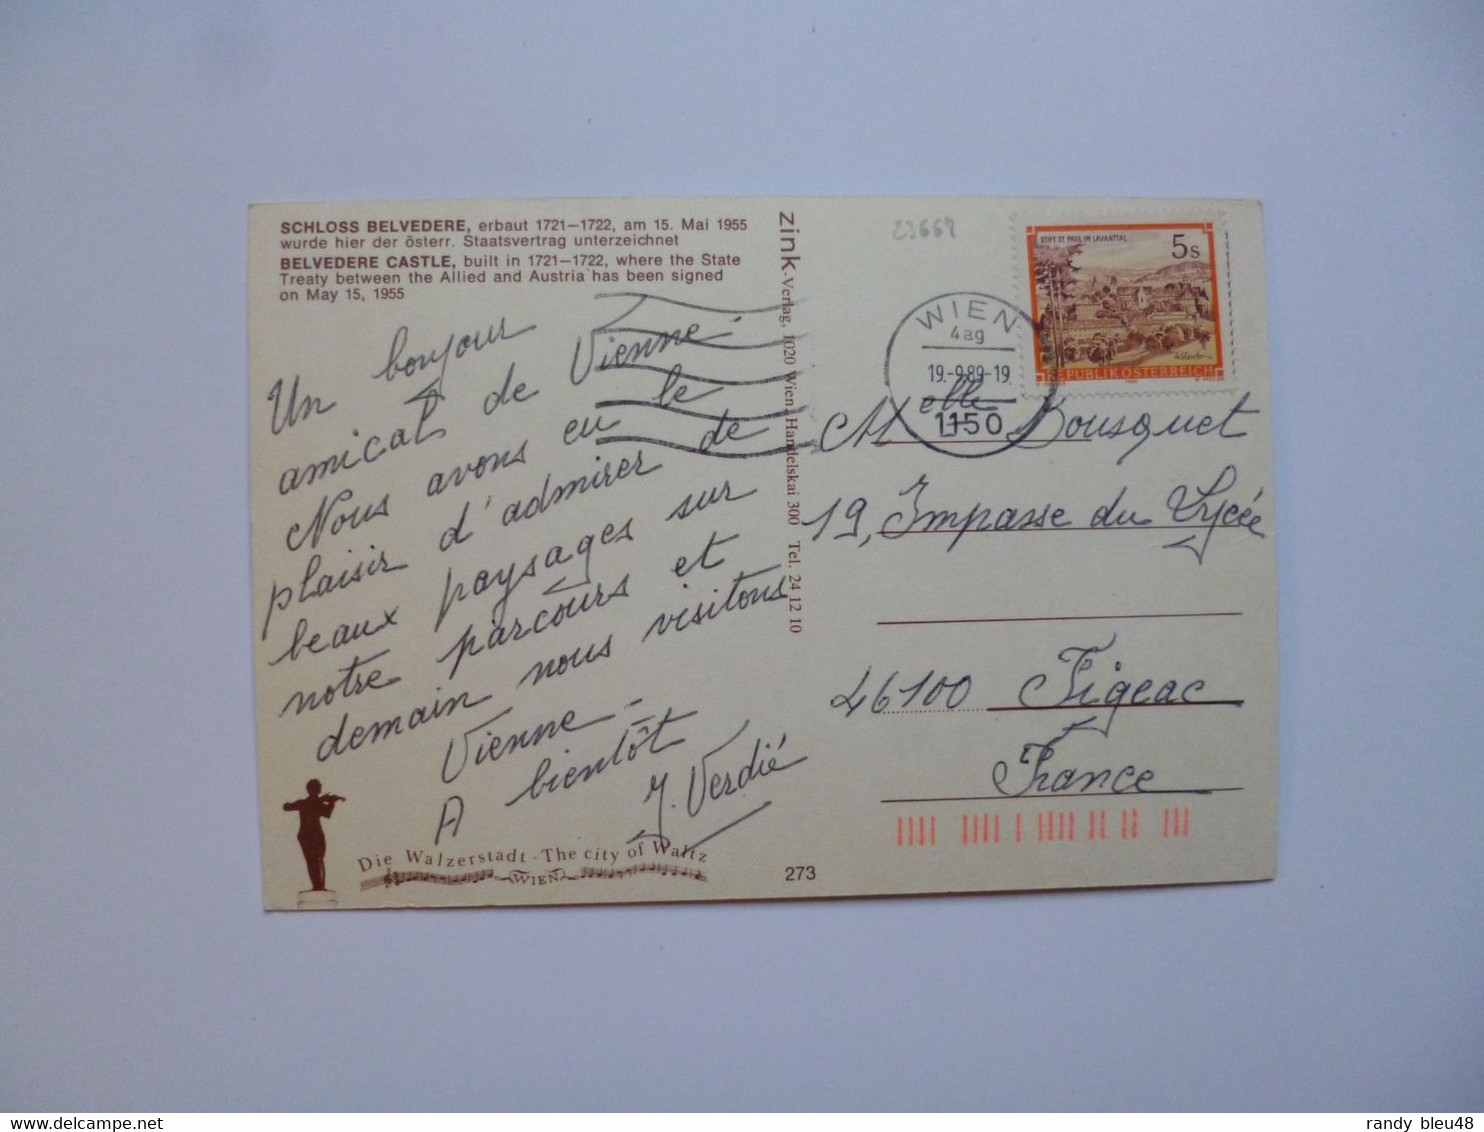 SCHLOSS BELVEDERE, erbaut 1721–1722, am 15. Mai 1955
wurde hier der österr. Staatsvertrag unterzeichnet
BELVEDERE CASTLE, built in 1721–1722, where the State
Treaty between the Allied and Austria has been signed
on May 15, 1955
Un bonjour
amical de Vienne.
Nous avons eu le
plaisir d'admirer de
beaux paysages sur
notre parcours et
demain nous visitons
Vienne -
A bientôt
Y. Verdié
Die Walzerstadt - The city of Waltz
WIEN
zink-Verlag, 1020 Wien, Handelskai 300 Tel. 24 12 10
273
23668
STIFT ST. PAUL IM LAVANTTAL
5s
REPUBLIK ÖSTERREICH
WIEN
4ag
19.-9.89-19
1150
Melle Bousquet
19, Impasse du Lycée
46100 Figeac
France
randy bleu48